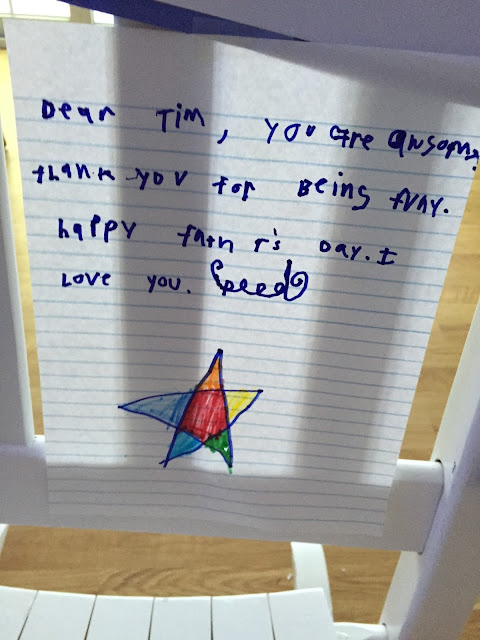 Dear Tim, you are awsome.
thank you for Being funy.
happy fath r's Day. I
Love you. Reed